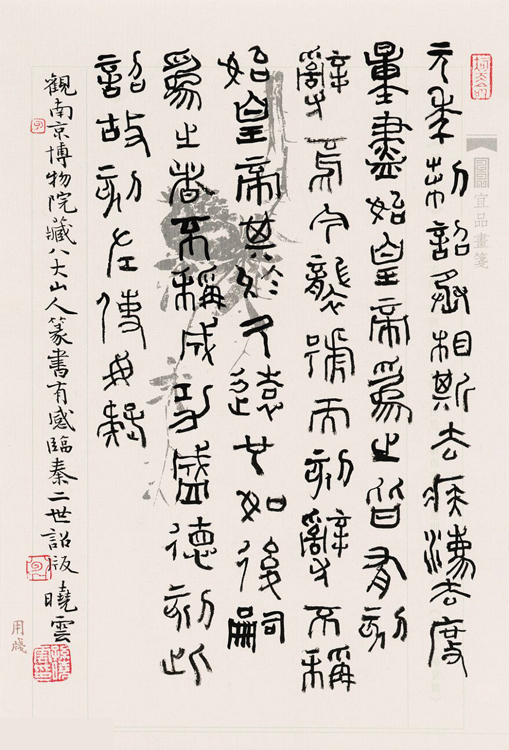 元年制詔丞相斯去疾灋度
量盡始皇帝爲之皆有刻
辭焉今襲號而刻辭不稱
始皇帝其於久遠也如後嗣
爲之者不稱成功盛德刻此
詔故刻左使毋疑
觀南京博物院藏八大山人篆書有感臨秦二世詔版 曉雲
宜品畫箋
用箋